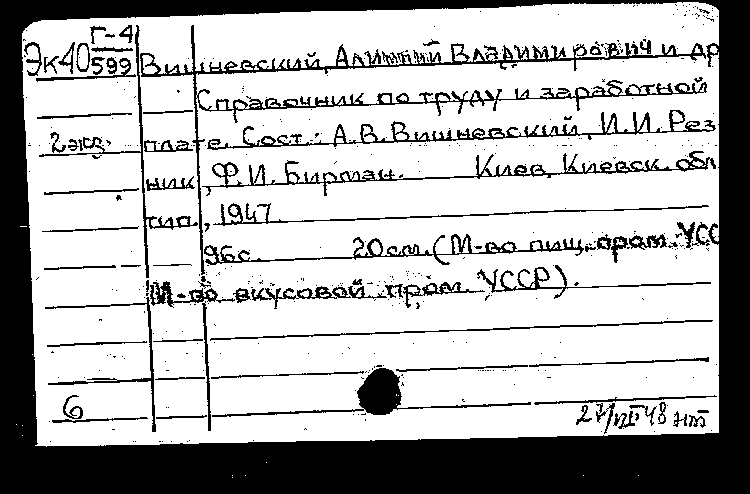 Г-4
Эк40 599
Вишневский, Алимпий Владимирович и др
Справочник по труду и заработной
2 экз. плате. Сост.: А.В. Вишневский, И.И. Рез
ник, Ф.И. Бирман. Киев, Киевск. обл
тип., 1947.
96с. 20см. (М-во пищ. пром. УСС
М-во вкусовой пром. УССР).
6